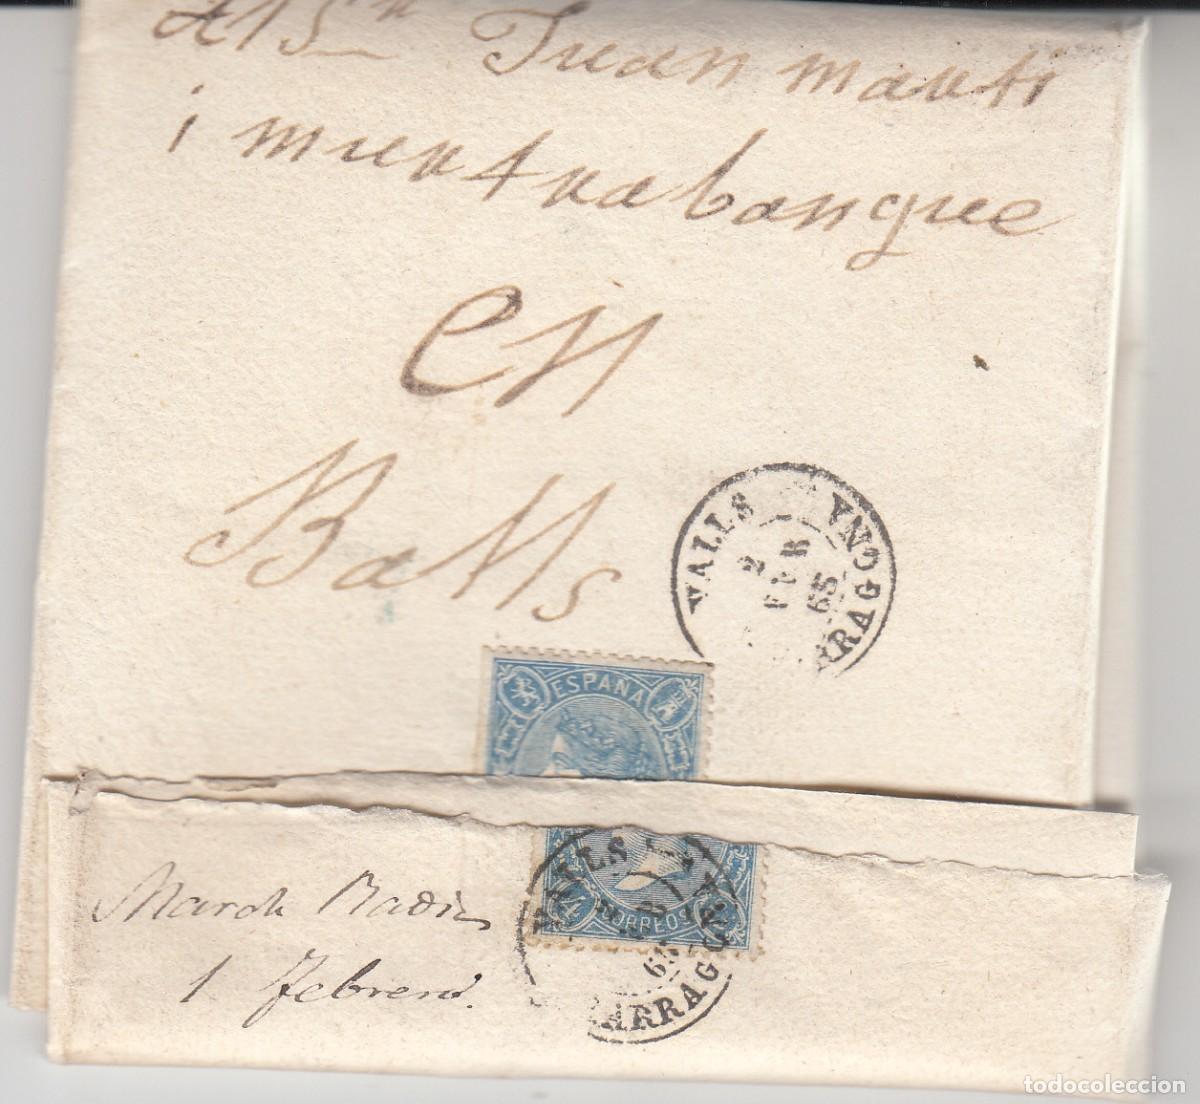 Al Sr Juan marti
i muntrabanque
en
Balls
VALLS
2
FEB
65
TARRAGONA
ESPAÑA
VALLS
4 CORREOS
65
TARRAGONA
March Radi
1 Febrero.
todocoleccion